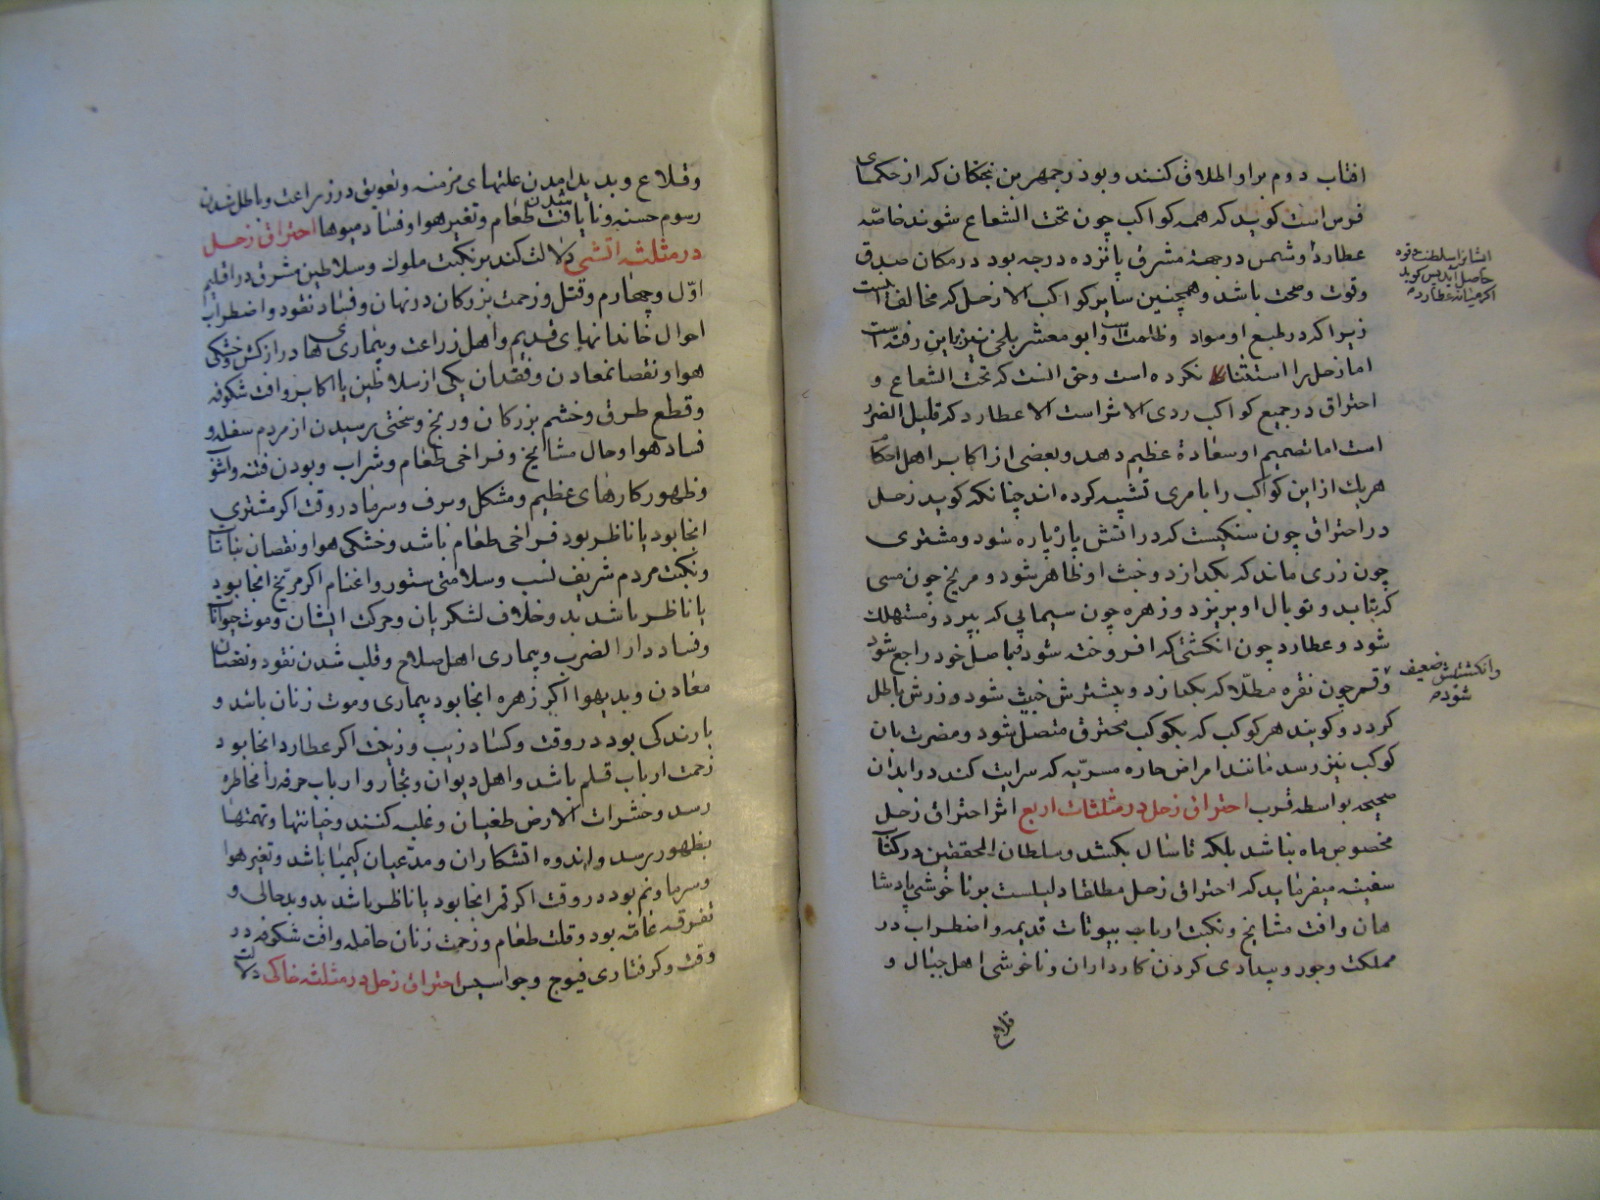 افتاب دوم براو اطلاق کنند و بوذرجمهر بن بختکان که از حکمای
فرس است کوید که همه کواکب چون تحت الشعاع شوند خاصّه
عطارد و شمس در جهة مشرق پانزده درجه بود در مکان صدق
وقوت وصحت باشد وهمچنین سایر کواکب الا زحل که مخالف است
زیرا که در طبع او مواد وظلمت است وابو معشر بلخی نیز باین رفته است
اما زحل را استثنا نکرده است وحق انست که تحت الشعاع و
احتراق در جمیع کواکب ردی الاثر است الا عطارد که قلیل الضرر
است اما تصمیم او سعادة عظیم دهد وبعضی از اکابر اهل احکام
هریک از این کواکب را بامری تشبیه کرده اند چنانکه کوید زحل
در احتراق چون سنکیست که در اتش پاره پاره شود ومشتری
چون زری ماند که بکدازد وخبث او ظاهر شود ومریخ چون مسی
که بتابد و توبال او بریزد وزهره چون سیمابی که بپرد ومستهلک
شود وعطارد چون انکشتی که افروخته شود فباصل خود راجع شود
وقمر چون نقره مطلّا که بکدازد وبیشترش خبث شود وزرش باطل
کردد وکویند هر کوکب که بکوکب محترق متصل شود ومضرت بان
کوکب نیز رسد مانند امراض حاره مسریه که سرایت کند در ابدان
صحیحه بواسطه قرب احتراق زحل در مثلثات اربع اثر احتراق زحل
مخصوص ماه نباشد بلکه تا سال بکشد وسلطان المحققین در کتاب
سفینه میفرماید که احتراق زحل مطلقا دلیلست بر ناخوشی پادشا
هان وافت مشایخ ونکبت ارباب بیوتات قدیمه واضطراب در
مملکت وجور وبیدادی کردن کارداران وناخوشی اهل جبال و
قلاع
ایشانرا سلطنت وقوه
حاصل آید پس کوید
اکر میانه عطارد
وانکشتش ضعیف
شود
وقلاع وبدید امدن علتهای مزمنه وتعویق در زراعت وباطل شدن
رسوم حسنه ونایافت شدن طعام وتغیر هوا وفساد میوها احتراق زحل
در مثلثه اتشی دلالت کند بر نکبت ملوک وسلاطین مشرق در اقلیم
اوّل وچهارم وقتل وزحمت بزرکان در نهان وفساد نقود واضطراب
احوال خاندانهای قدیم واهل زراعت وبیماری های دراز کش وخشکی
هوا ونقصان معادن وفقدان یکی از سلاطین یا اکابر وافت شکوفه
وقطع طرق وخشم بزرکان ورنج وسختی برسیدن از مردم سفله و
فساد هوا وحال مشایخ وفراخی طعام وشراب وبودن فتنه واشوب
وظهور کارهای عظیم ومشکل وبرف وسرما در وقت اکر مشتری
انجا بود یا ناظر بود فراخی طعام باشد وخشکی هوا ونقصان نباتات
ونکبت مردم شریف نسب وسلامتی ستور واغنام اکر مریخ انجا بود
یا ناظر باشد بد وخلاف لشکریان وحرکت ایشان وموت حیوانات
وفساد دار الضرب وبیماری اهل سلاح وقلب شدن نقود ونقصان
معادن وبدیهوا اکر زهره انجا بود بیماری وموت زنان باشد و
بارندکی بود در وقت وکساد زیب وزینت اکر عطارد انجا بود
زحمت ارباب قلم باشد واهل دیوان وتجار وارباب حرفه را مخاطره
رسد وحشرات الارض طغیان وغلبه کنند وخیانتها وتهمتها
بظهور برسد واندوه اتشکاران ومدّعیان کیمیا باشد وتغیر هوا
وسرما ونم بود در وقت اکر قمر انجا بود یا ناظر باشد بد وبدحالی و
تفرقه عامّه بود وقلت طعام وزحمت زنان حامله وافت شکوفه در
وقت وکرفتاری فیوج وجواسیس احتراق زحل در مثلثه خاکی دلالت